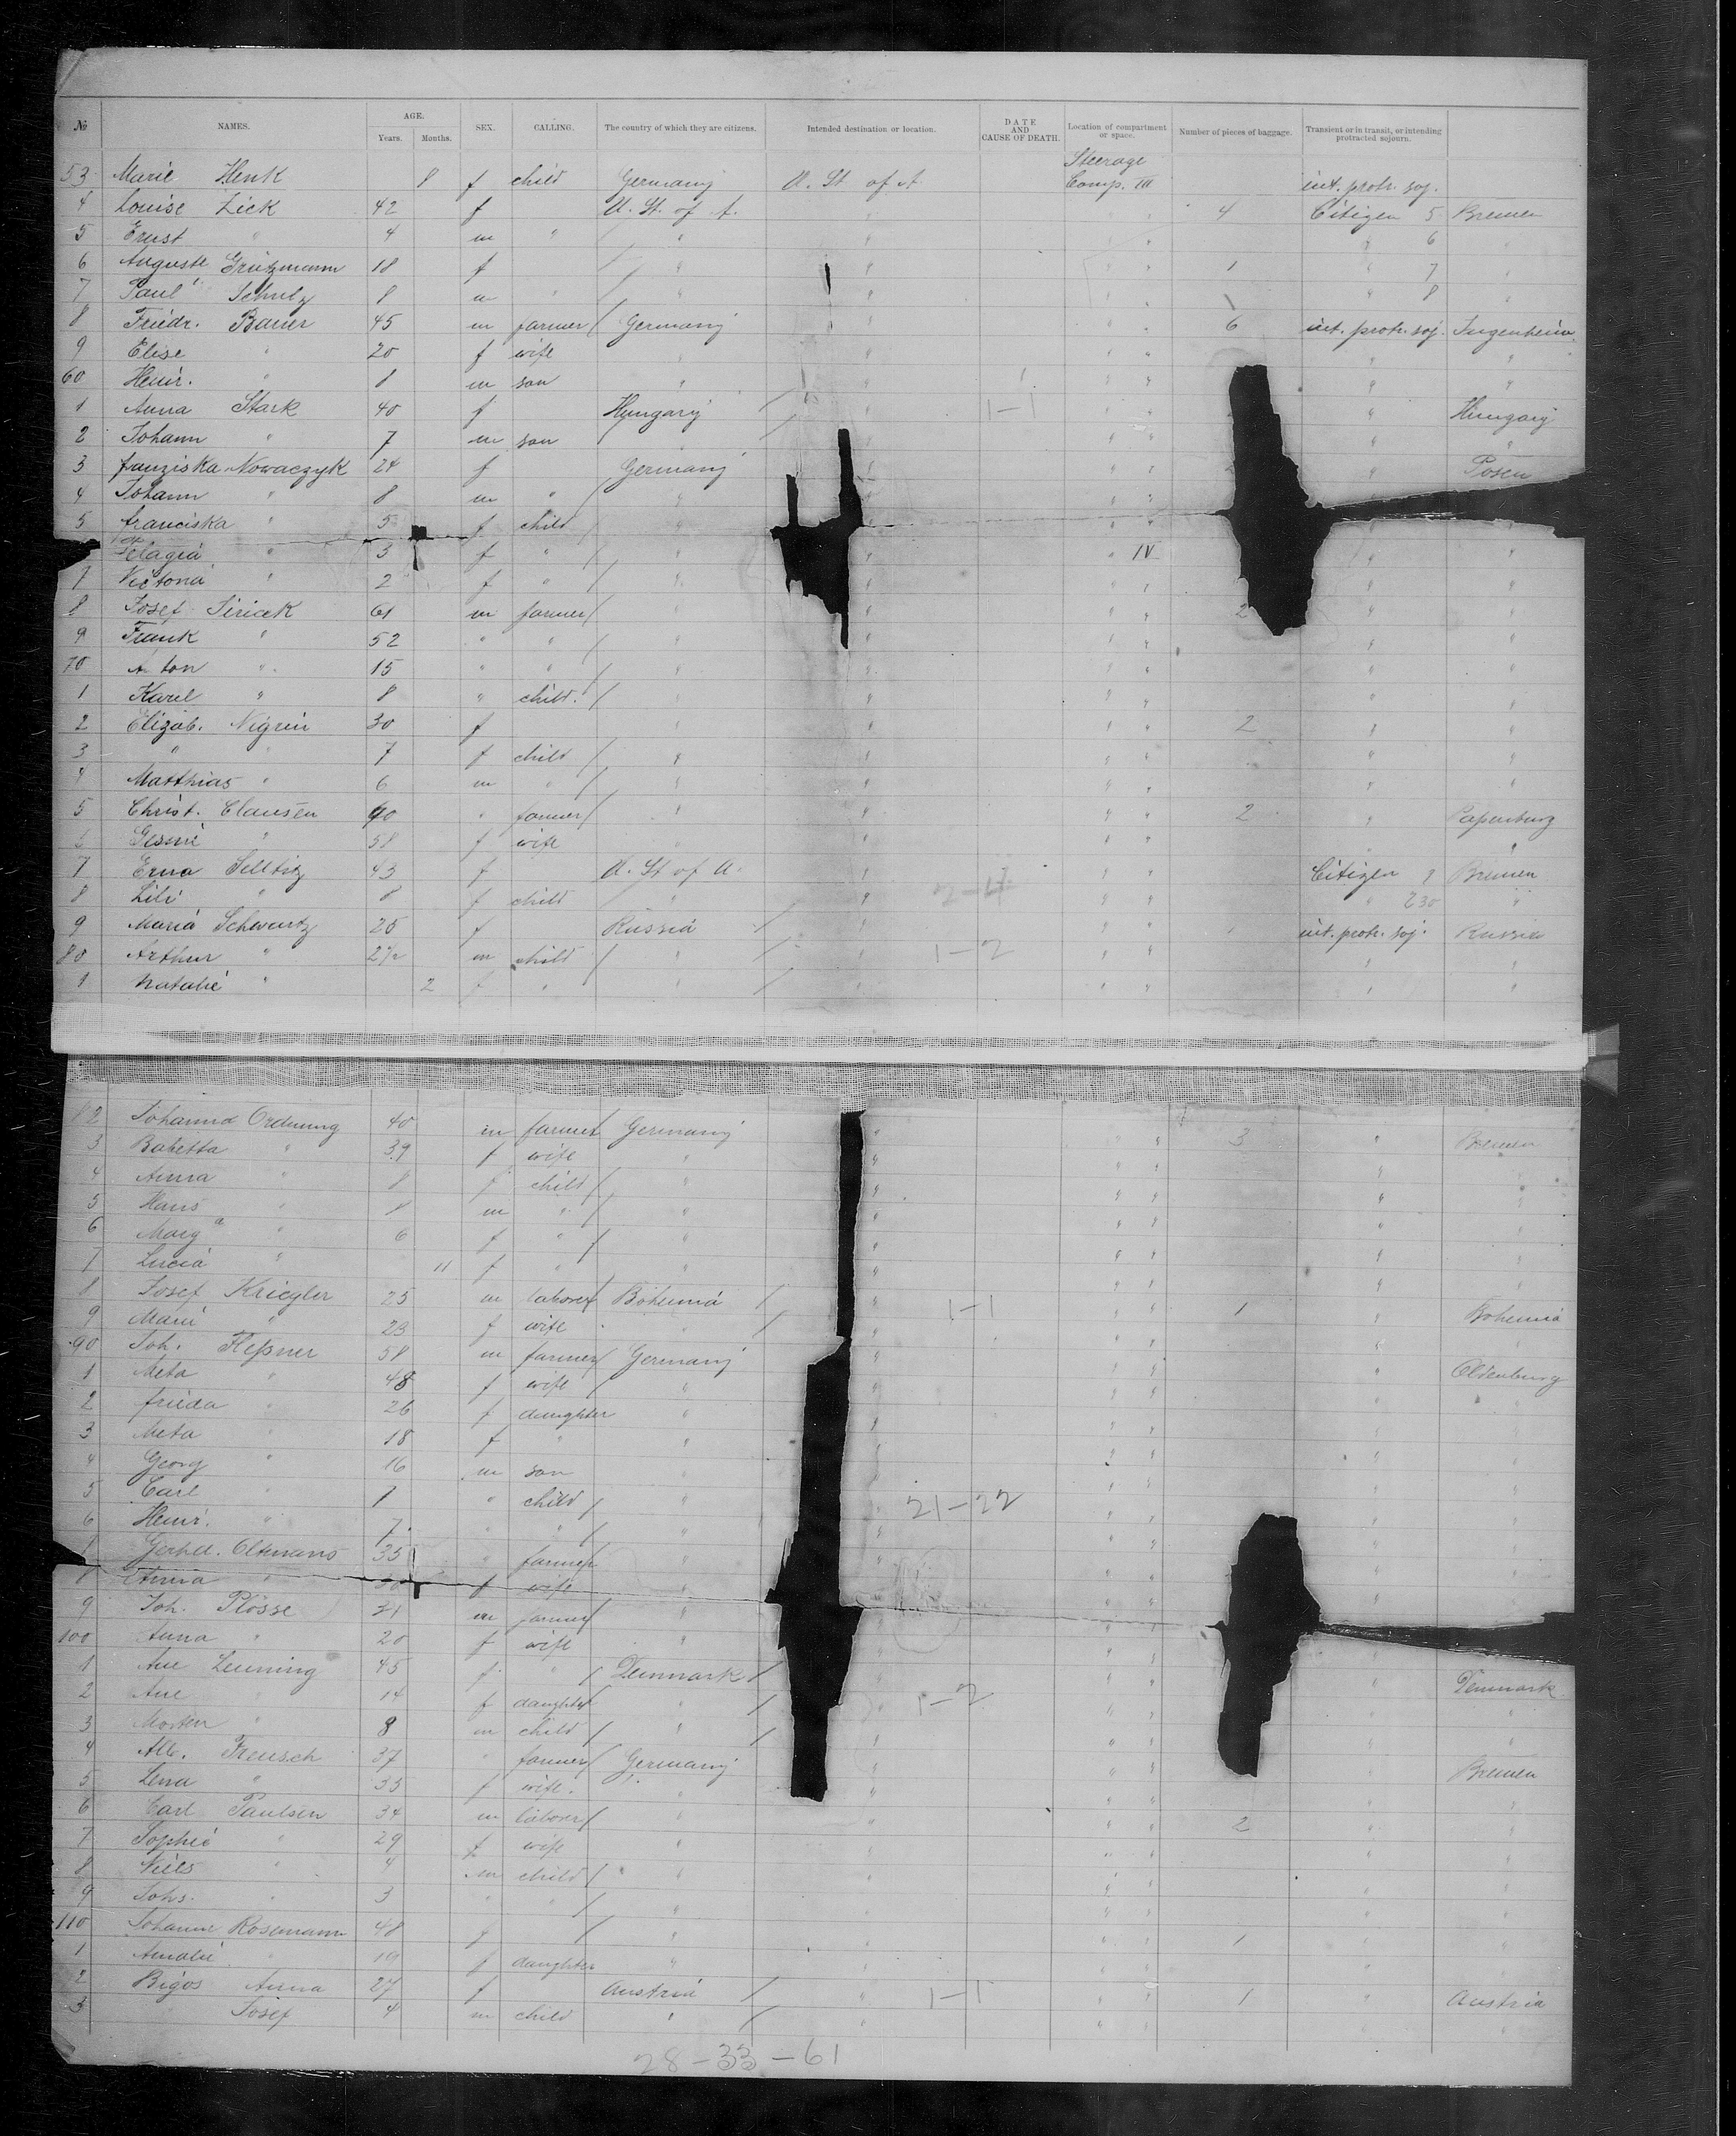 № NAMES. AGE. Years. Months. SEX. CALLING. The country of which they are citizens. Intended destination or location. DATE AND CAUSE OF DEATH. Location of compartment or space. Number of pieces of baggage. Transient or in transit, or intending protracted sojourn.
Steerage
53 Marie Henk 8 f child Germany U. St of A Comp. III int. protr. soj.
4 Louise Zick 42 f U. St. of A. " " 4 Citizen 5 Bremen
5 Ernst " 4 m " " " " " " 6 "
6 Auguste Grützmann 18 f " " " " 1 " 7 "
7 Paul Schulz 8 m " " " " " 1 " 8 "
8 Friedr. Bauer 45 m farmer Germany " " " 6 int. protr. soj. Jugenheim
9 Elise " 20 f wife " " " " " "
60 Heinr. " 8 m son " " " " " "
1 Anna Stark 40 f Hungary " 1-1 " " Hungary
2 Johann " 7 m son " " " " "
3 Franziska Nowaczyk 24 f Germany " " " " Posen
4 Johann " 8 m " " " " " "
5 Franciska " 5 f child " " " " " "
Pelagia " 3 f " " " " IV " "
7 Victoria " 2 f " " " " " " "
8 Josef 61 m farmer " " " " 2 " "
9 Frank " 52 " " " " " " " "
70 Anton " 15 " " " " " " " "
1 Karel " 8 " child. " " " " " "
2 Elizab. Nigrin 30 f " " " " 2 " "
3 " " 7 f child " " " " " "
4 Matthias " 6 m " " " " " " "
5 Christ. Clausen 60 " farmer " " " " 2 " Papenburg
Gesine " 58 f wife " " " " " "
7 Erna 43 f U. St of A. " " " Citizen 9 Bremen
8 Lili " 8 f child " " 2-4 " " " 230 "
9 Maria Schwartz 25 f Russia " " " 1 int. protr. soj. Russia
80 Arthur " 2½ m child " " 1-2 " " " "
1 Natalie " 2 f " " " " " " "
82 Johannd Ordnung 40 m farmer Germany " " 3 " Bremen
3 Babetta " 39 f wife " " " " " "
4 Anna " 8 f child " " " " " "
5 Hans " 8 m " " " " " " "
6 Marg a " 6 f " " " " " " "
7 Lucia " 11 f " " " " " " "
8 Josef Kriegler 25 m laborer Bohemia " 1-1 " " 1 " Bohemia
9 Marie " 23 f wife " " " " " "
90 Joh. Hepner 58 m farmer Germany " " " " Oldenburg
1 Meta " 48 f wife " " " " " "
2 Frieda " 26 f daughter " " " " " "
3 Meta " 18 f " " " " " " "
4 Georg " 16 m son " " " " " "
5 Carl " 8 " child " " 21-22 " " " "
6 Heinr. " 7 " " " " " " " "
Gerhd. Oltmans 35 " farmer " " " " "
8 Anna " 30 f wife " " " " "
9 Joh. Plösse 21 m farmer " " "
100 Anna " 20 f wife " " " "
1 Ane Lenning 45 f " Denmark " " " " Denmark
2 Ane " 14 f daughter " " 1-2 " " " "
3 Morten " 8 m child " " " " " "
4 Alb. Frensch 37 " farmer Germany " " " " Bremen
5 Lena " 33 f wife. " " " " " "
6 Carl Paulsen 34 m laborer " " " " 2 " "
7 Sophie " 29 f wife " " " " " "
8 Niels " 4 m child " " " " " "
9 Johs. " 3 " " " " " " "
110 Johanne Rosemann 48 f " " " " 1 " "
1 Amalie " 19 f daughter " " " " " "
2 Bigos Anna 27 f Austria " 1-1 " " 1 " Austria
3 " Josef 4 m child " " " " "
28-33-61